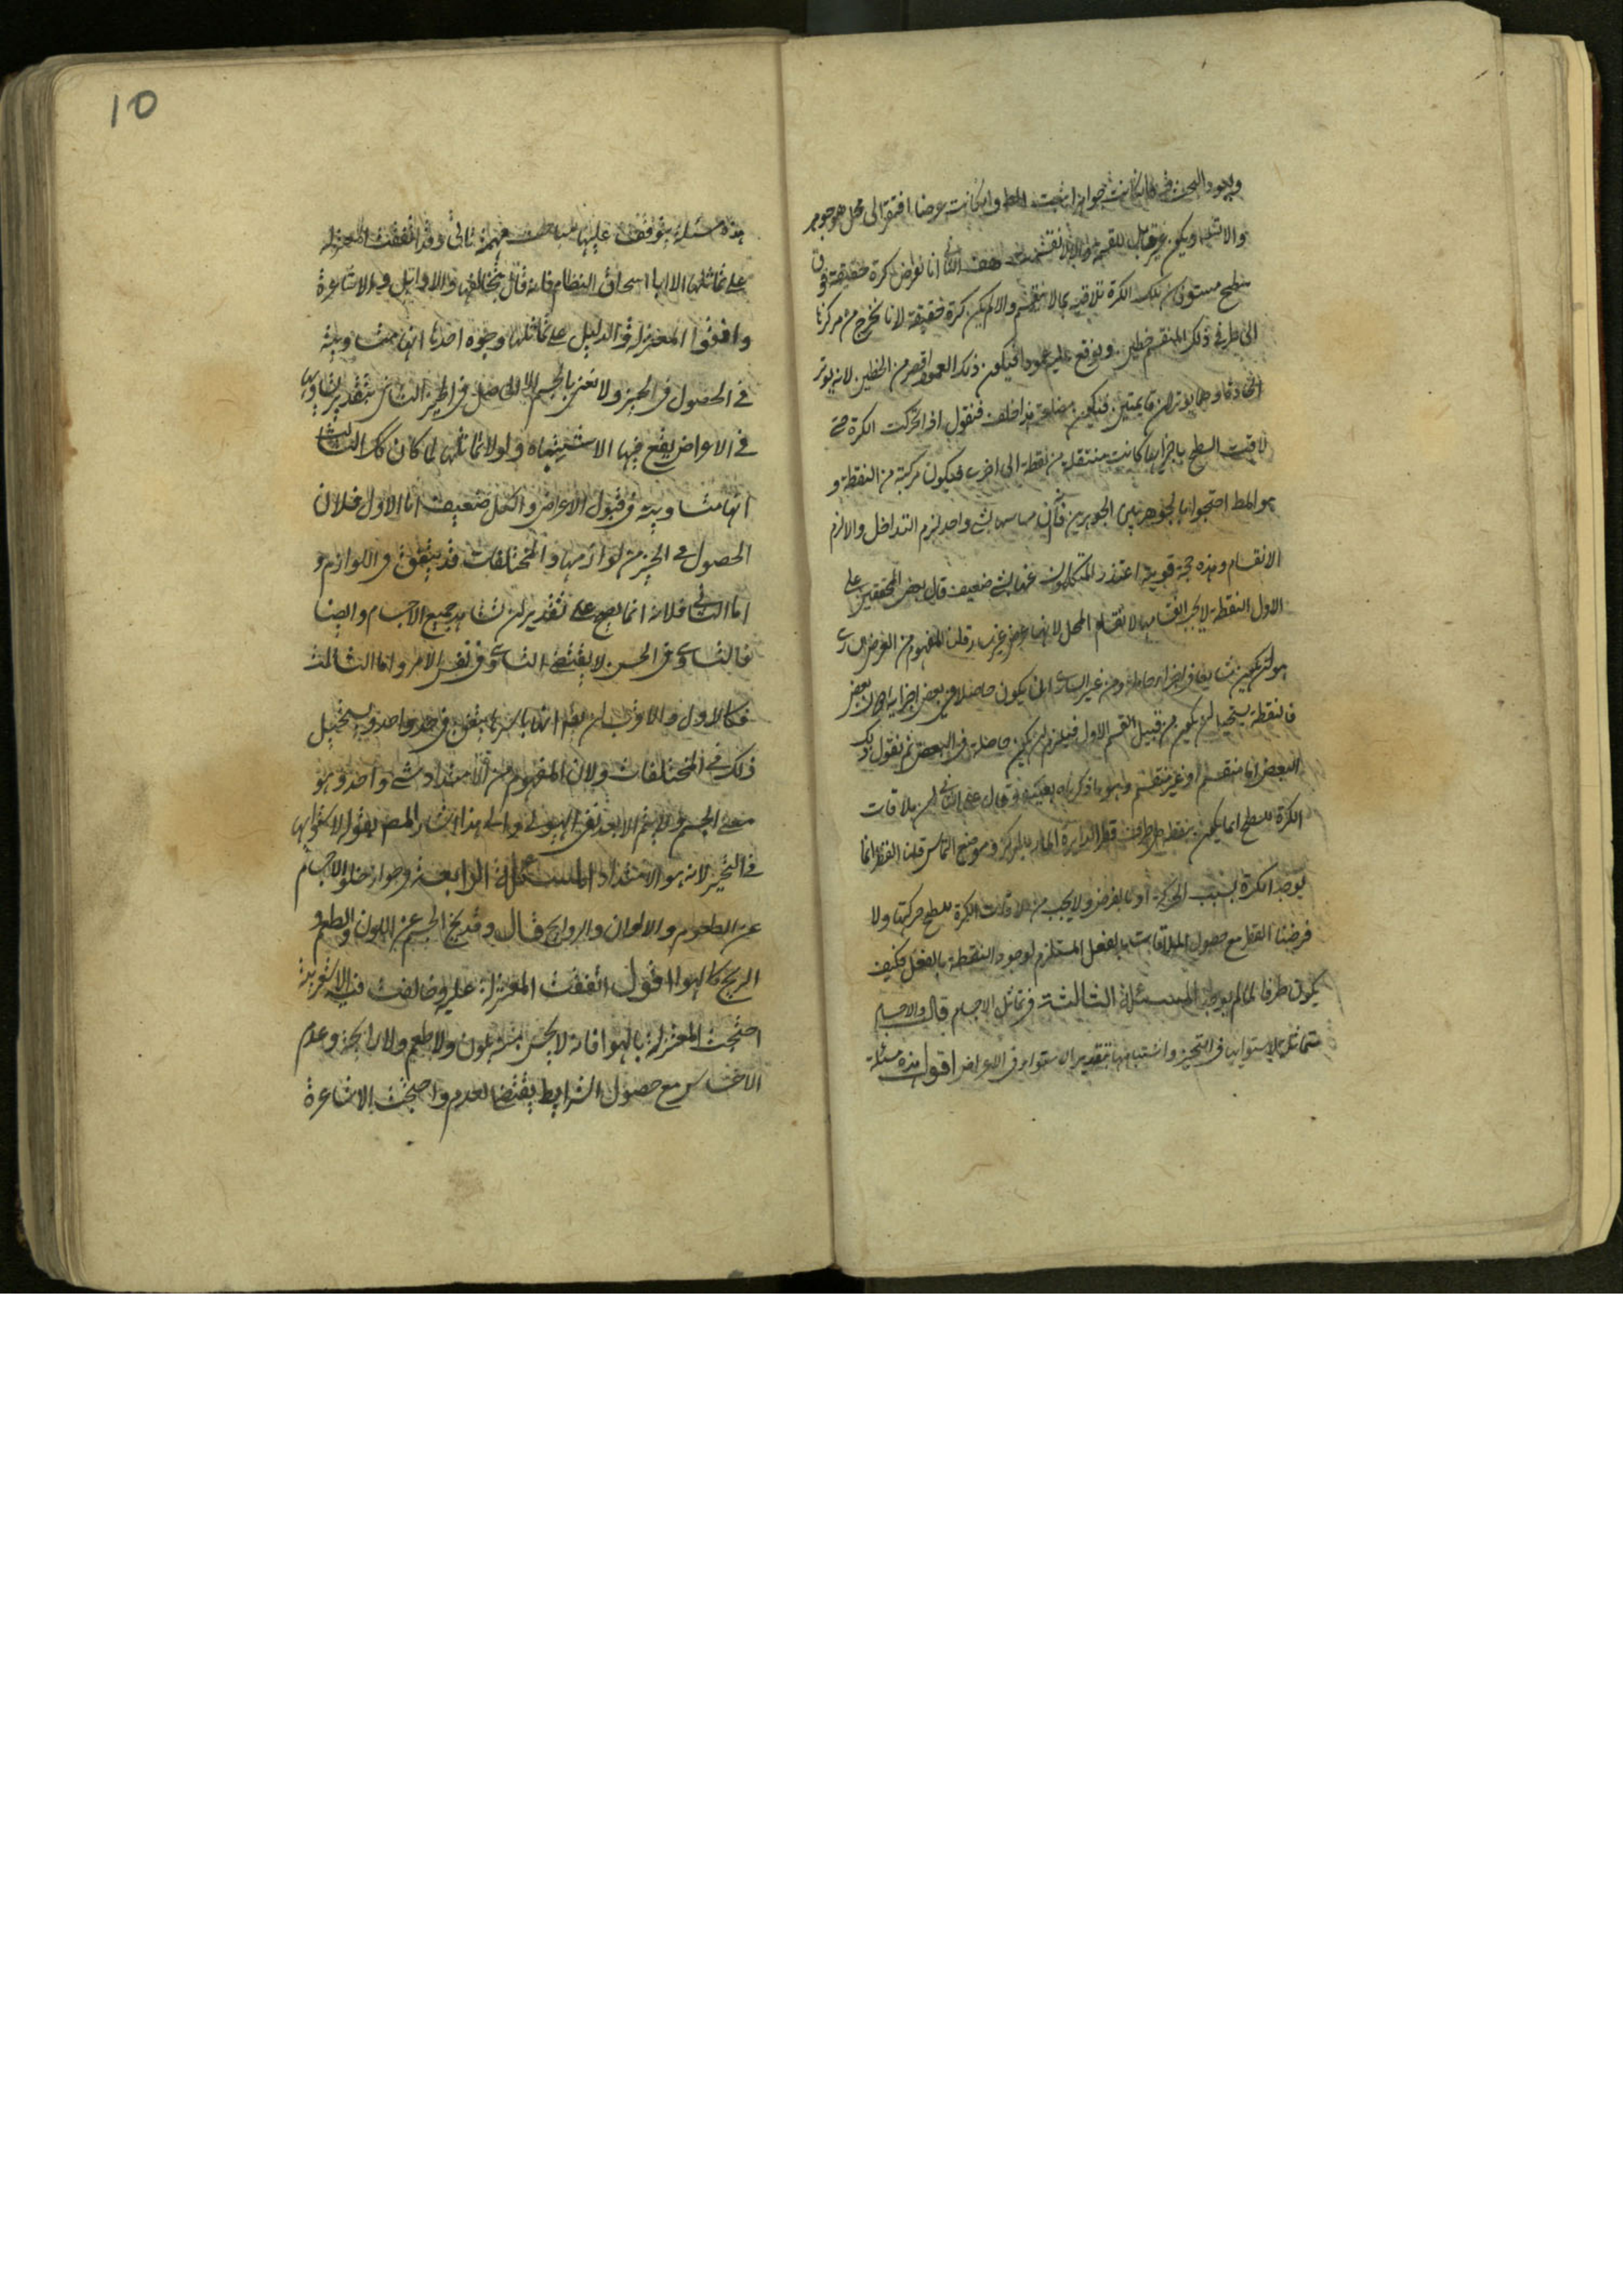 ويعود البحث في كانت جواهر ثبت المط وان كانت عرضا افتقر الى محل هو جوهر
والا تسلسل ويكون غير قابل للقسمة والا لانقسمت هف الثاني انا نفرض كرة حقيقية فوق
سطح مستو فان تلك الكرة تلاقيه بما لا ينقسم والا لم يكن كرة حقيقية لانا نخرج من مركزها
الى طرفي ذلك المنقسم خطين ويوقع عليه عمودا فيكون ذلك العمود اقصر من الخطين لانه يوتر
الحادة وهما يوتران قايمتين فيكون مضلعة هذا خلف فنقول اذا تحركت الكرة حتى
لاقت السطح باجزايها كانت منتقلة من نقطة الى اخرى فيكون مركبة من النقطة و
هو المط احتجوا بالجوهر بين الجوهرين فانه يماسهما بشي واحد لزم التداخل والا لزم
الانقسام وهذه حجة قوية اعتذر المتكلمون عنها بشي ضعيف قال بعض المحققين على
الاول النقطة لا يجب انقسامها لانقسام المحل لانها عرض غير سار قلنا المفهوم من العرض الساري
هو ان يكون شايعا في اجزاء حامله ومن غير الساري ان يكون حاصلا في بعض اجزايه دون بعض
فالنقطة يستحيل ان يكون من قبيل القسم الاول فيلزم ان يكون حاصلة في البعض ثم نقول ذلك
البعض اما منقسم او غير منقسم وهو ما ذكرناه بعينه وقال على الثاني ان ملاقات
الكرة للسطح انما يكون بنقطة هي طرف قطر الدايرة المار بالمركز وموضع التماس قلنا القطر انما
يوجد في الكرة بسبب الحركة او بالفرض ولا يجب من ملاقات الكرة للسطح حركتها ولا
فرضنا القطر مع حصول الملاقات بالفعل المستلزم لوجود النقطة بالفعل فكيف
يكون طرفا لما لم يوجد المسئلة الثالثة في تماثل الاجسام قال والاجسام
متماثلة لاستوايها في التحيز واشتباهها بتقدير استوايها في الاعراض اقول هذه مسئلة
10
هذه مسئلة يتوقف عليها مباحث مهمة تاتي وقد اتفقت المعتزلة
على تماثلها الا ابا اسحاق النظام فانه قال بتخالفها والاوايل والاشاعرة
وافقوا المعتزلة والدليل على تماثلها وجوه احدها انها متساوية
في الحصول في الحيز ولا نعني بالجسم الا الحاصل في الحيز الثاني بتقدير تساويها
في الاعراض يقع فيها الاشتباه ولولا تماثلها لما كان كك الثالث
انها متساوية في قبول الاعراض والكل ضعيف اما الاول فلان
الحصول في الحيز من لوازمها والمختلفات قد يتفق في اللوازم و
اما الثاني فلانه انما يصح على تقدير ان نشاهد جميع الاجسام وايضا
فالتساوي في الحس لا يقتضي التساوي في نفس الامر واما الثالث
فكالاول والاقرب ان يقال انها باسرها يتفق في حد واحد ويستحيل
ذلك في المختلفات ولان المفهوم من الامتداد شي واحد وهو
معنى الجسم ولا يتم الا بعد نفي الهيولى والى هذا اشار المصنف بقوله لاستوايها
في التحيز لانه هو الامتداد المسئلة الرابعة في جواز خلو الاجسام
عن الطعوم والالوان والروايح قال وقد يخ الجسم عن اللون والطعم و
الريح كالهوا اقول اتفقت المعتزلة عليه وخالفت فيه الاشعرية
احتجت المعتزلة بالهوا فانه لا يحس منه بلون ولا طعم ولا رايحة وعدم
الاحساس مع حصول الشرايط يقتضي العدم واحتجت الاشاعرة